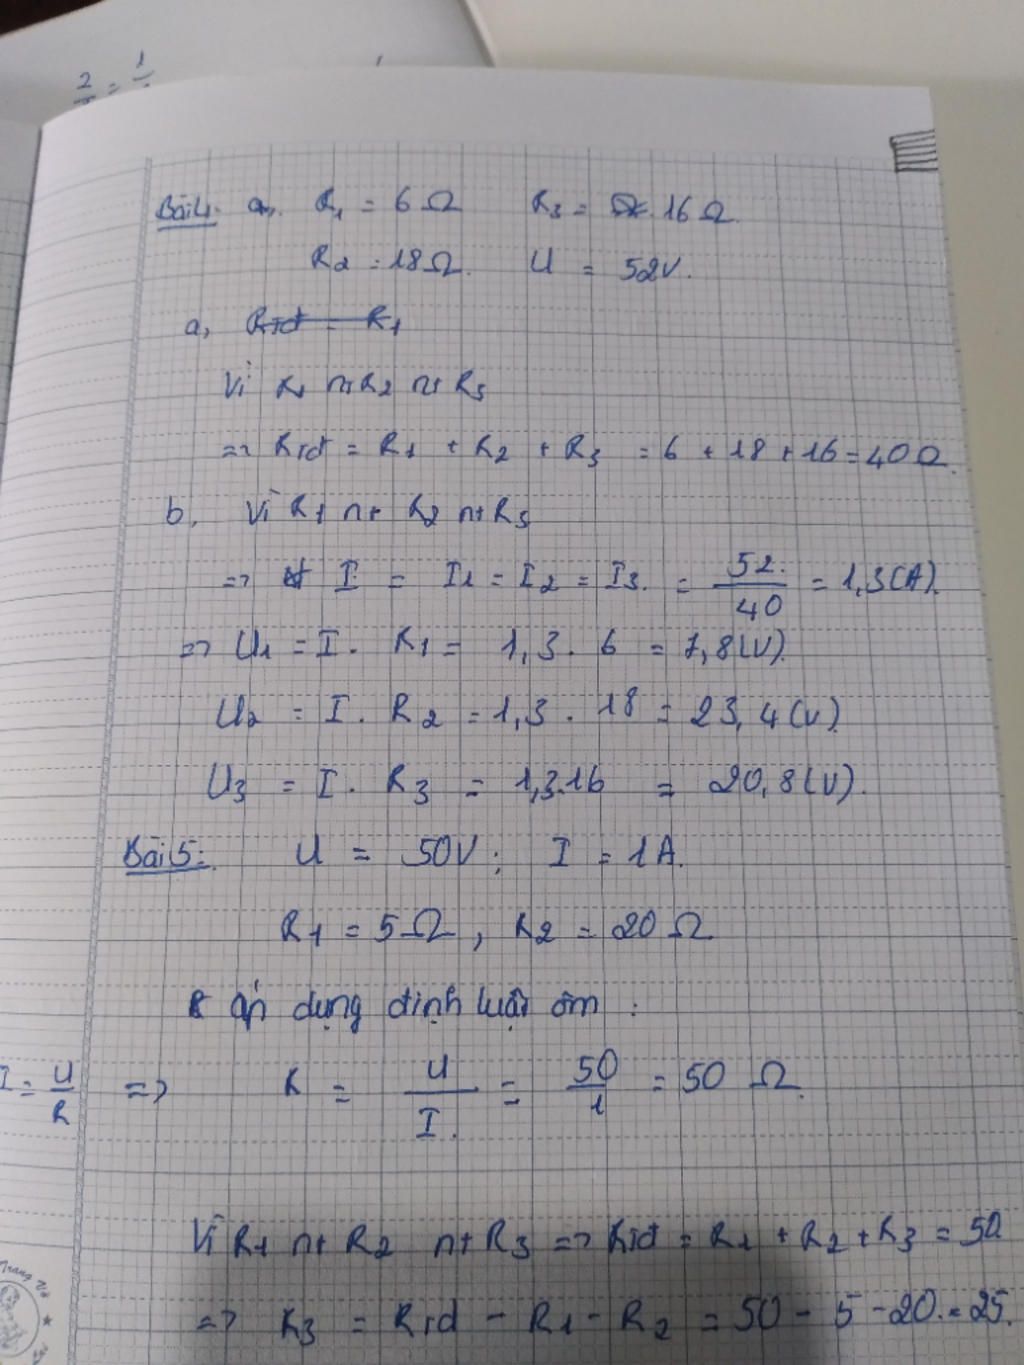 2 = 1
Bài 4: a, R1 = 6Ω R3 = 16Ω.
R2 = 18Ω. U = 52V.
a, Rtđ = R1
Vì R1 nt R2 nt R3
=> Rtđ = R1 + R2 + R3 = 6 + 18 + 16 = 40Ω.
b, Vì R1 nt R2 nt R3
=> I = I1 = I2 = I3. = 52/40 = 1,3(A).
=> U1 = I. R1 = 1,3. 6 = 7,8(V).
U2 = I. R2 = 1,3. 18 = 23,4(V).
U3 = I. R3 = 1,3.16 = 20,8(V).
Bài 5: U = 50V; I = 1A.
R1 = 5Ω, R2 = 20Ω
áp dụng định luật ôm :
I = U/R => R = U/I. = 50/1 = 50 Ω.
Vì R1 nt R2 nt R3 => Rtđ = R1 + R2 + R3 = 50
=> R3 = Rtđ - R1 - R2 = 50 - 5 - 20. = 25.
Trang